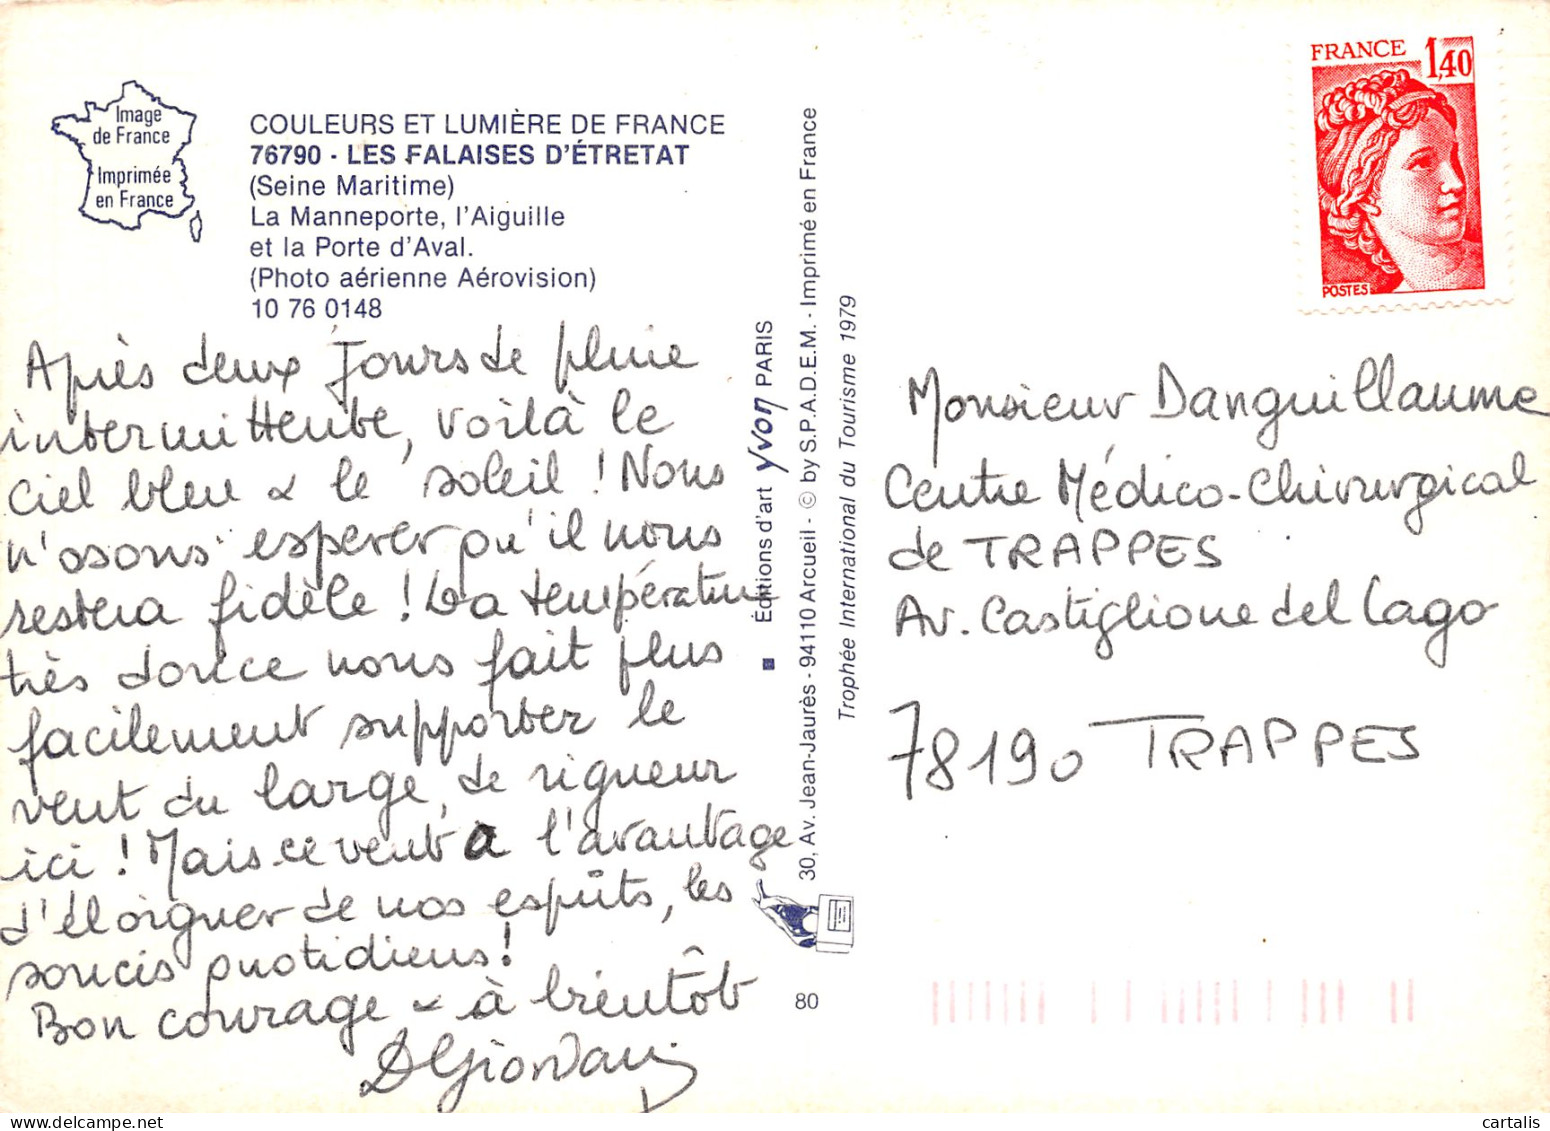 Image
de France
Imprimée
en France
COULEURS ET LUMIÈRE DE FRANCE
76790 - LES FALAISES D'ÉTRETAT
(Seine Maritime)
La Manneporte, l'Aiguille
et la Porte d'Aval.
(Photo aérienne Aérovision)
10 76 0148
Après deux jours de pluie
intermittente, voilà le
ciel bleu & le soleil ! Nous
n'osons espérer qu'il nous
restera fidèle ! La température
très douce nous fait plus
facilement supporter le
vent du large, de rigueur
ici ! Mais ce vent a l'avantage
d'éloigner de nos esprits, les
soucis quotidiens !
Bon courage & à bientôt
DGiordani
Éditions d'art yvon PARIS
30, Av. Jean-Jaurès - 94110 Arcueil - © by S.P.A.D.E.M. - Imprimé en France
Trophée International du Tourisme 1979
80
FRANCE 1,40
POSTES
Monsieur Danguillaume
Centre Médico-Chirurgical
de TRAPPES
Av. Castiglione del Lago
78190 TRAPPES
cartalis